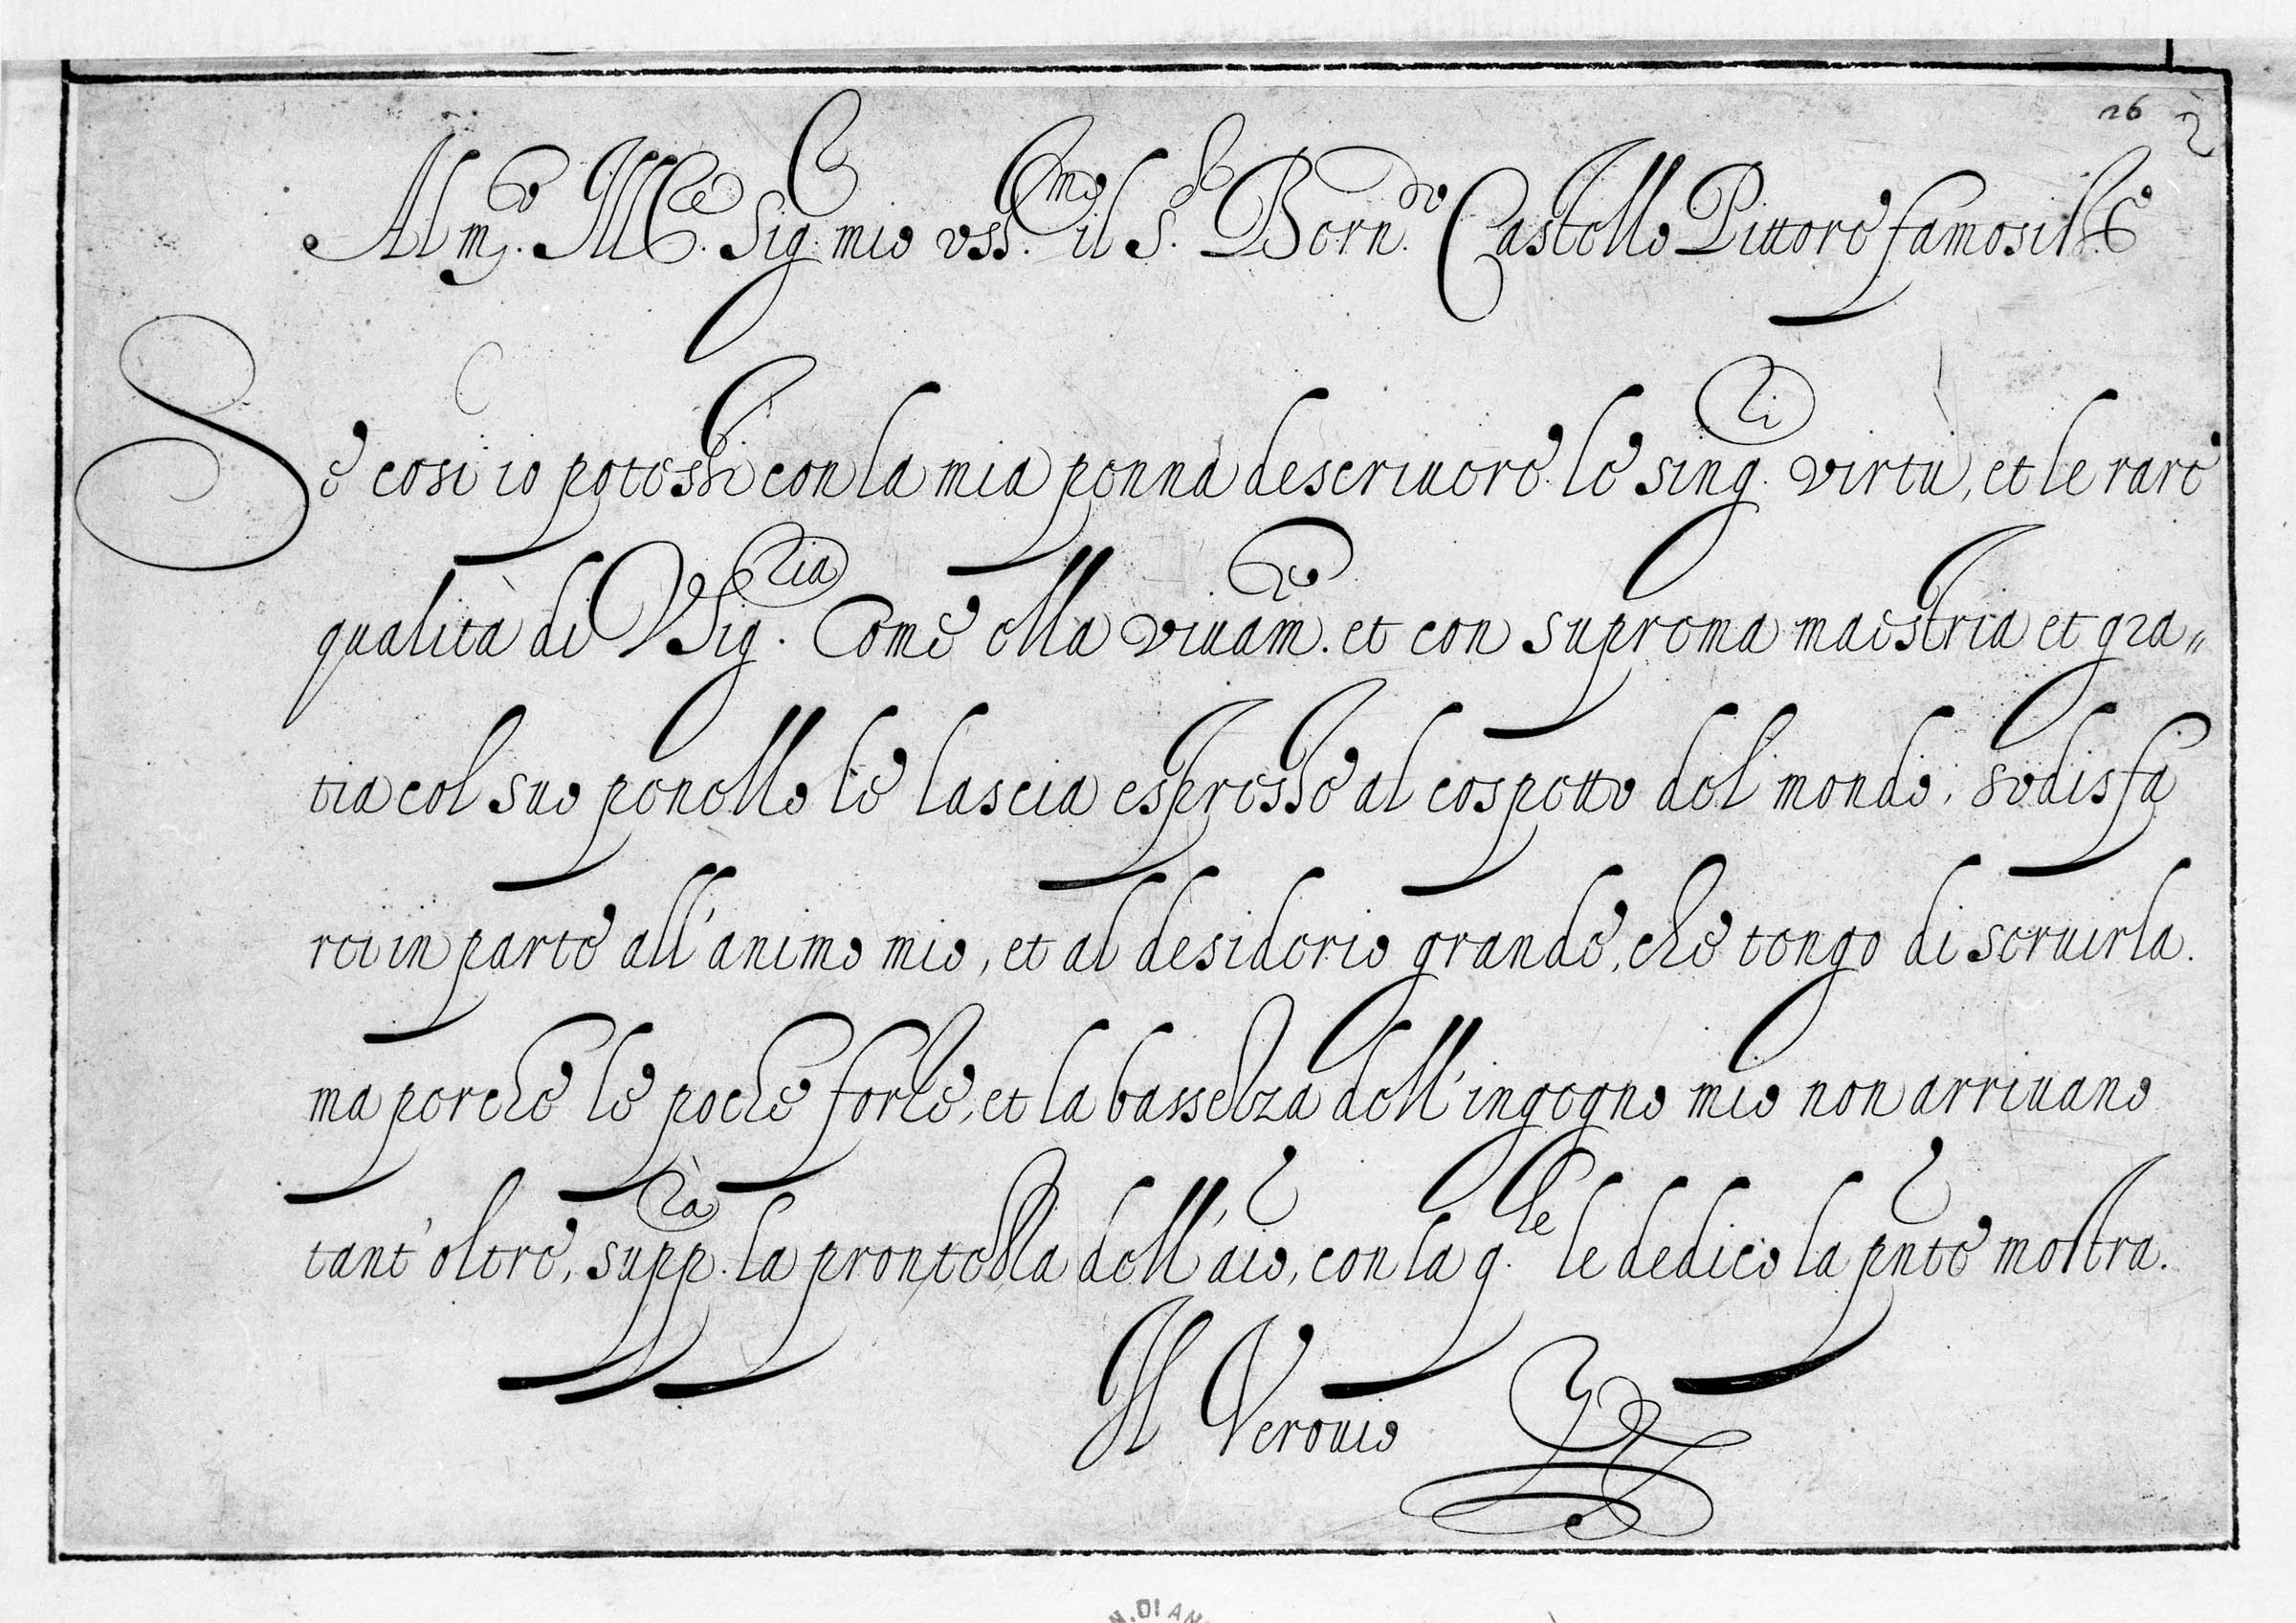 26
Al m.to Mce. Sig. mio oss.mo il S.r Bern.do Castello Pittore famosiss.o
Se cosi io potessi con la mia penna descriuere le sing.ri virtù, et le rare
qualità di VSig.ria Come ella viuam.te et con suprema maestria et gra„
tia col suo penello le lascia espresse al cospetto del mondo; sodisfa
rei in parte all'animo mio, et al desiderio grande, che tengo di seruirla.
ma perche le poche forze, et la bassezza dell'ingegno mio non arriuano
tant'oltre, supp.rà la prontezza dell'aio, con la q.le le dedico la pnte mostra.
Il Verouio